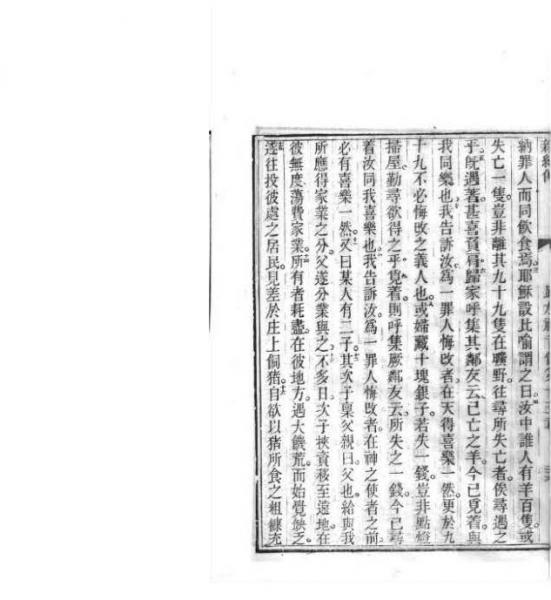 納罪人而同飲食焉耶穌設比喻謂之曰汝中誰人有羊百隻或
失亡一隻豈非離其九十九隻在曠野往尋所失亡者俟尋遇之
乎旣遇著甚喜負肩歸家呼集其鄰友云已亡之羊今已覓着與
我同樂也我告訴汝爲一罪人悔改者在天得喜樂一然更於九
十九不必悔改之義人也或婦藏十塊銀子若失一錢豈非點燈
掃屋勤尋欲得之乎覓着則呼集厥鄰友云所失之一錢今已尋
着汝同我喜樂也我告訴汝爲一罪人悔改者在神之使者之前
必有喜樂一然又曰某人有二子其次子稟父親曰父也給與我
所應得家業之分父遂分業與之不多日次子挾資移至遠地在
彼無度蕩費家業所有者耗盡在彼地方遇大饑荒而始覺缺乏
遂往投彼處之居民見差於庄上飼猪自欲以猪所食之粗糠充